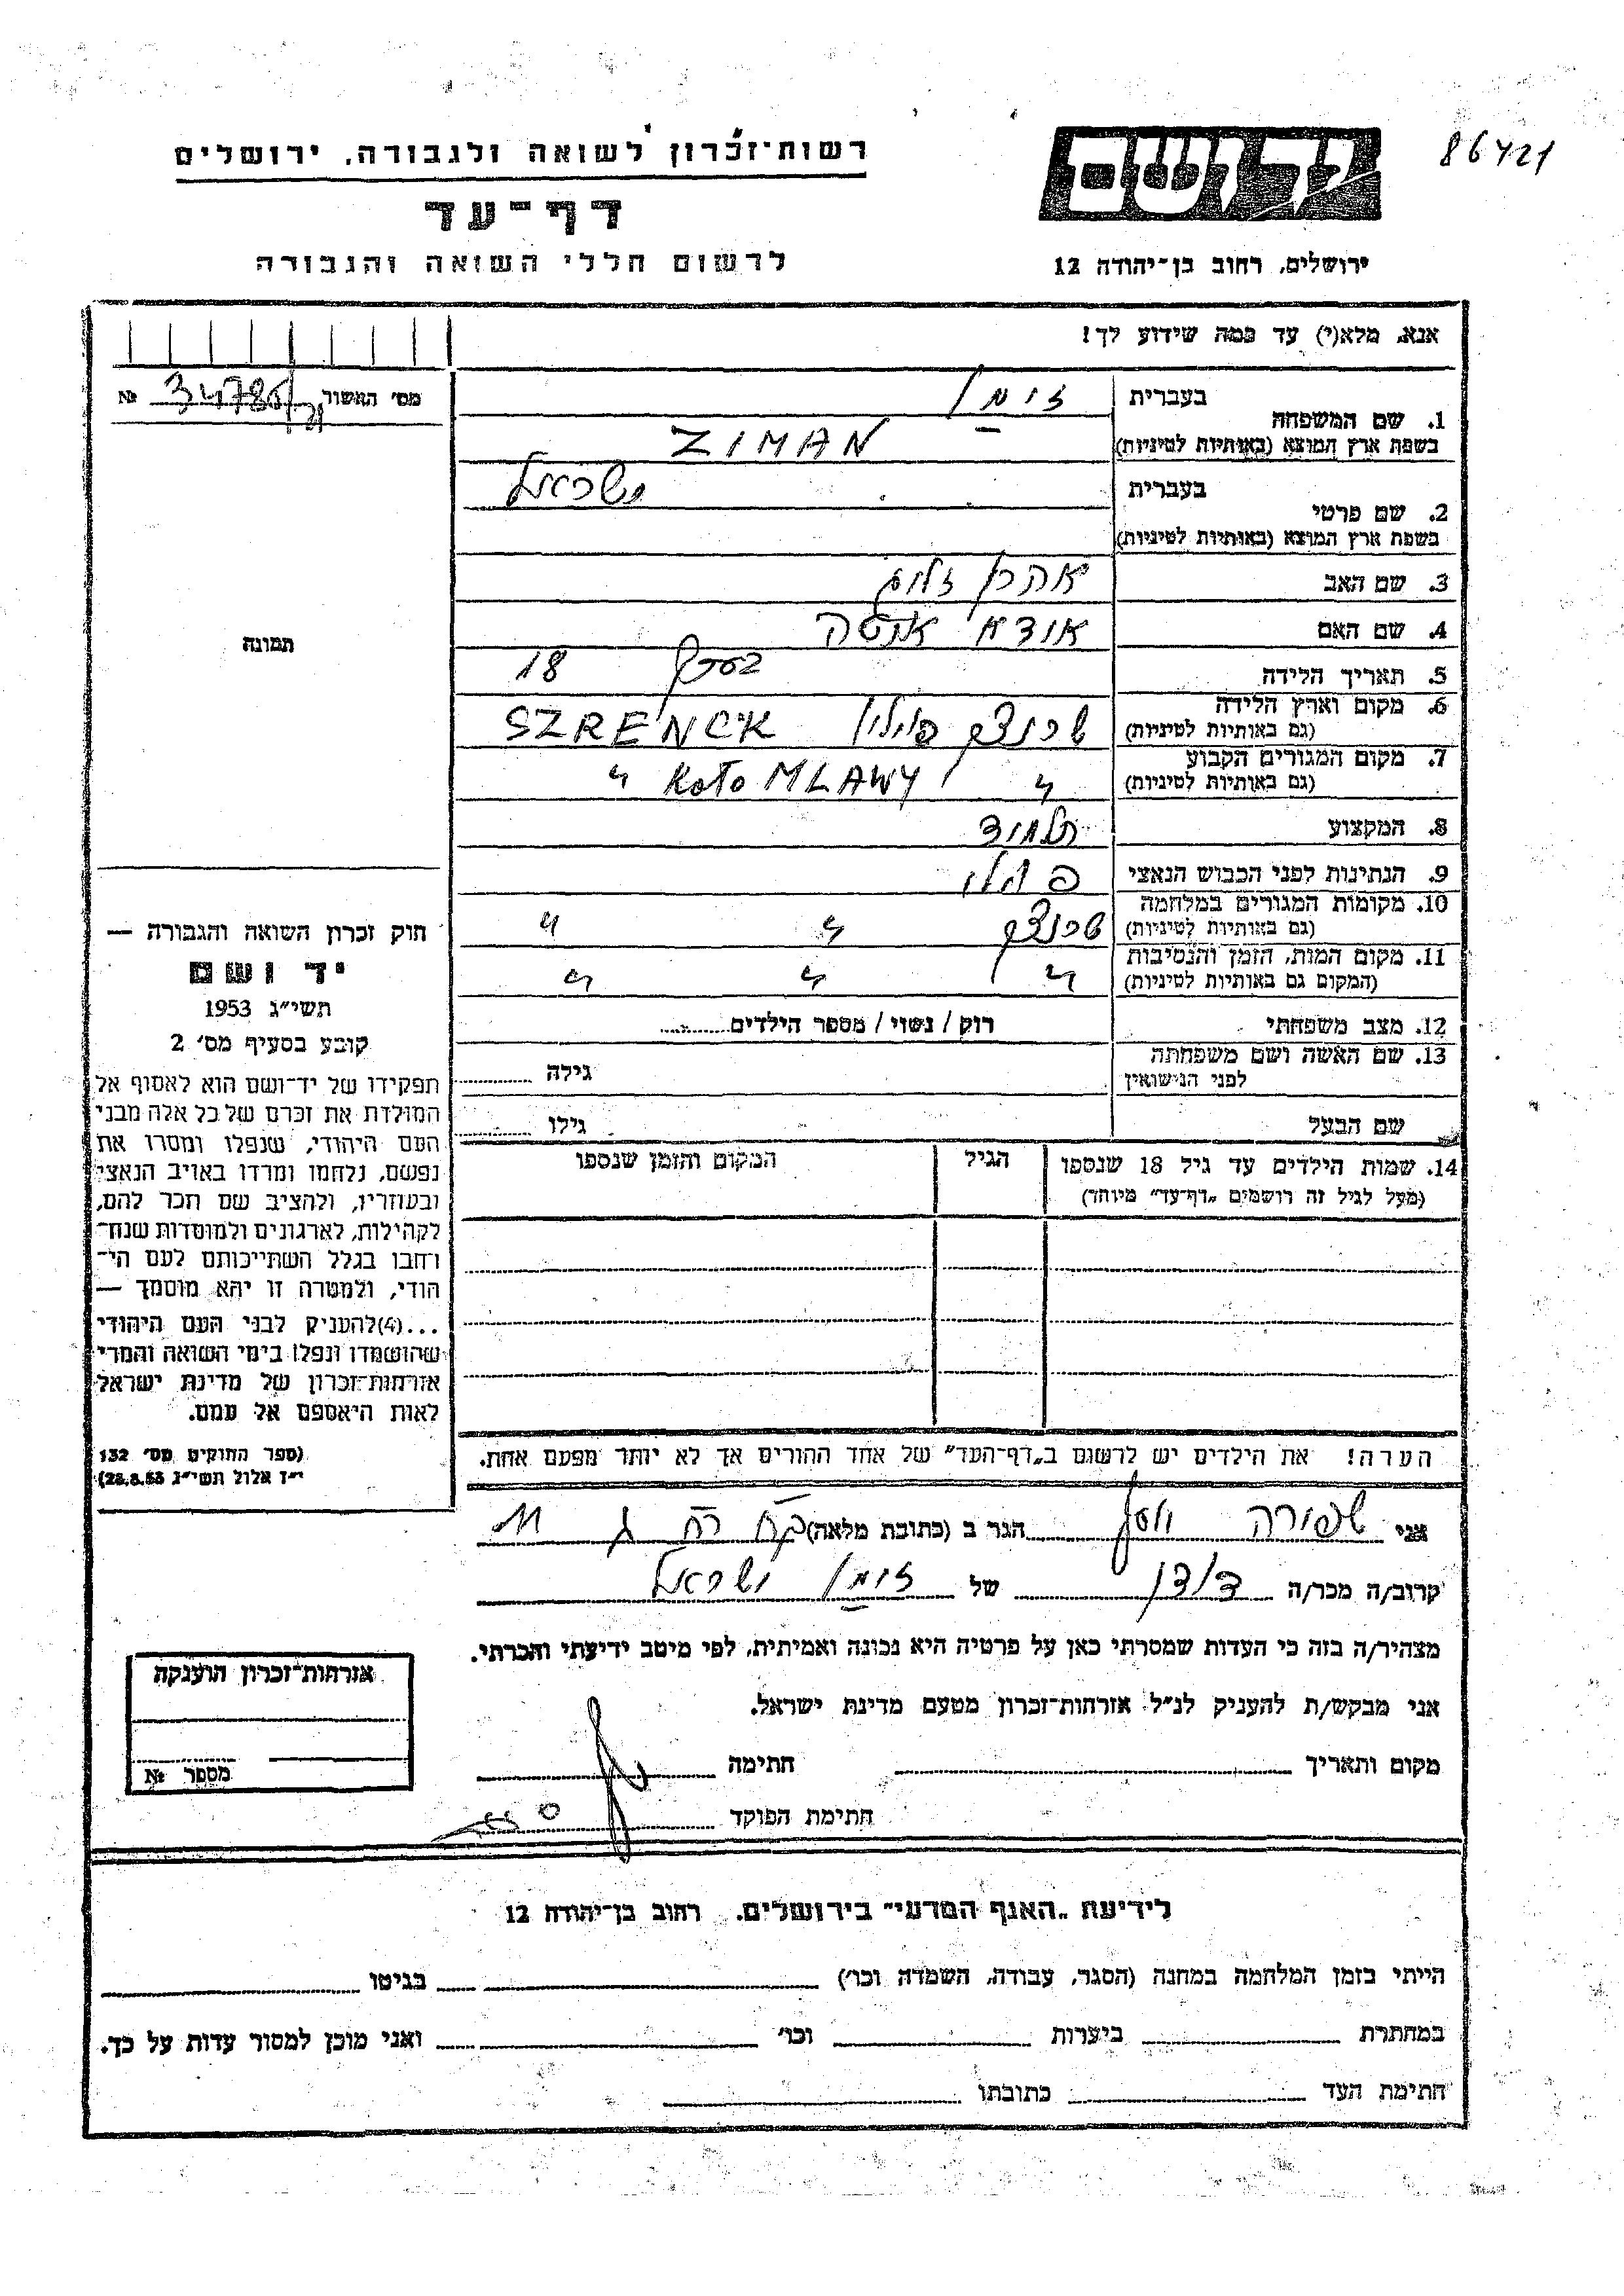 86421
רשות־זכרון לשואה ולגבורה, ירושלים
יד ושם
דף־עד
ירושלים, רחוב בן־יהודה 12
לרשום חללי השואה והגבורה
אנא, מלא(י) עד כמה שידוע לך!
מס' האשור № 34785
1. שם המשפחה
בעברית זימן
בשפת ארץ המוצא (באותיות לטיניות) ZIMAN
2. שם פרטי
בעברית ישראל
בשפת ארץ המוצא (באותיות לטיניות)
3. שם האב אהרן זליג
4. שם האם
5. תאריך הלידה בערך 18
6. מקום וארץ הלידה (גם באותיות לטיניות) שרנצק פולין SZRENCK
7. מקום המגורים הקבוע (גם באותיות לטיניות) " Koło MLAWY "
8. המקצוע תלמיד
9. הנתינות לפני הכבוש הנאצי פולני
10. מקומות המגורים במלחמה (גם באותיות לטיניות) שרנצק " "
11. מקום המות, הזמן והנסיבות (המקום גם באותיות לטיניות) " " "
12. מצב משפחתי רוק / נשוי / מספר הילדים
13. שם האשה ושם משפחתה לפני הנישואין גילה
שם הבעל גילו
14. שמות הילדים עד גיל 18 שנספו הגיל המקום והזמן שנספו
(מעל לגיל זה רושמים "דף־עד" מיוחד)
הערה! את הילדים יש לרשום ב"דף־העד" של אחד ההורים אך לא יותר מפעם אחת.
תמונה
חוק זכרון השואה והגבורה —
יד ושם
תשי"ג 1953
קובע בסעיף מס' 2
תפקידו של יד־ושם הוא לאסוף אל
המולדת את זכרם של כל אלה מבני
העם היהודי, שנפלו ומסרו את
נפשם, נלחמו ומרדו באויב הנאצי
ובעוזריו, ולהציב שם וזכר להם,
לקהילות, לארגונים ולמוסדות שנח־
רבו בגלל השתייכותם לעם הי־
הודי, ולמטרה זו יהא מוסמך —
...(4)להעניק לבני העם היהודי
שהושמדו ונפלו בימי השואה והמרי
אזרחות־זכרון של מדינת ישראל
לאות היאספם אל עמם.
(ספר החוקים מס' 132
י"ז אלול תשי"ג 28.8.53)
אני שפורה הגר ב (כתובת מלאה) 11
קרוב/ה מכר/ה דודן של זימן ישראל
מצהיר/ה בזה כי העדות שמסרתי כאן על פרטיה היא נכונה ואמיתית, לפי מיטב ידיעתי והכרתי.
אני מבקש/ת להעניק לנ"ל אזרחות־זכרון מטעם מדינת ישראל.
מקום ותאריך חתימה
חתימת הפוקד
אזרחות־זכרון הוענקה
מספר №
לידיעת "האגף המדעי" בירושלים, רחוב בן־יהודה 12
הייתי בזמן המלחמה במחנה (הסגר, עבודה, השמדה וכו') בגיטו
במחתרת ביערות וכו' ואני מוכן למסור עדות על כך.
חתימת העד כתובתו